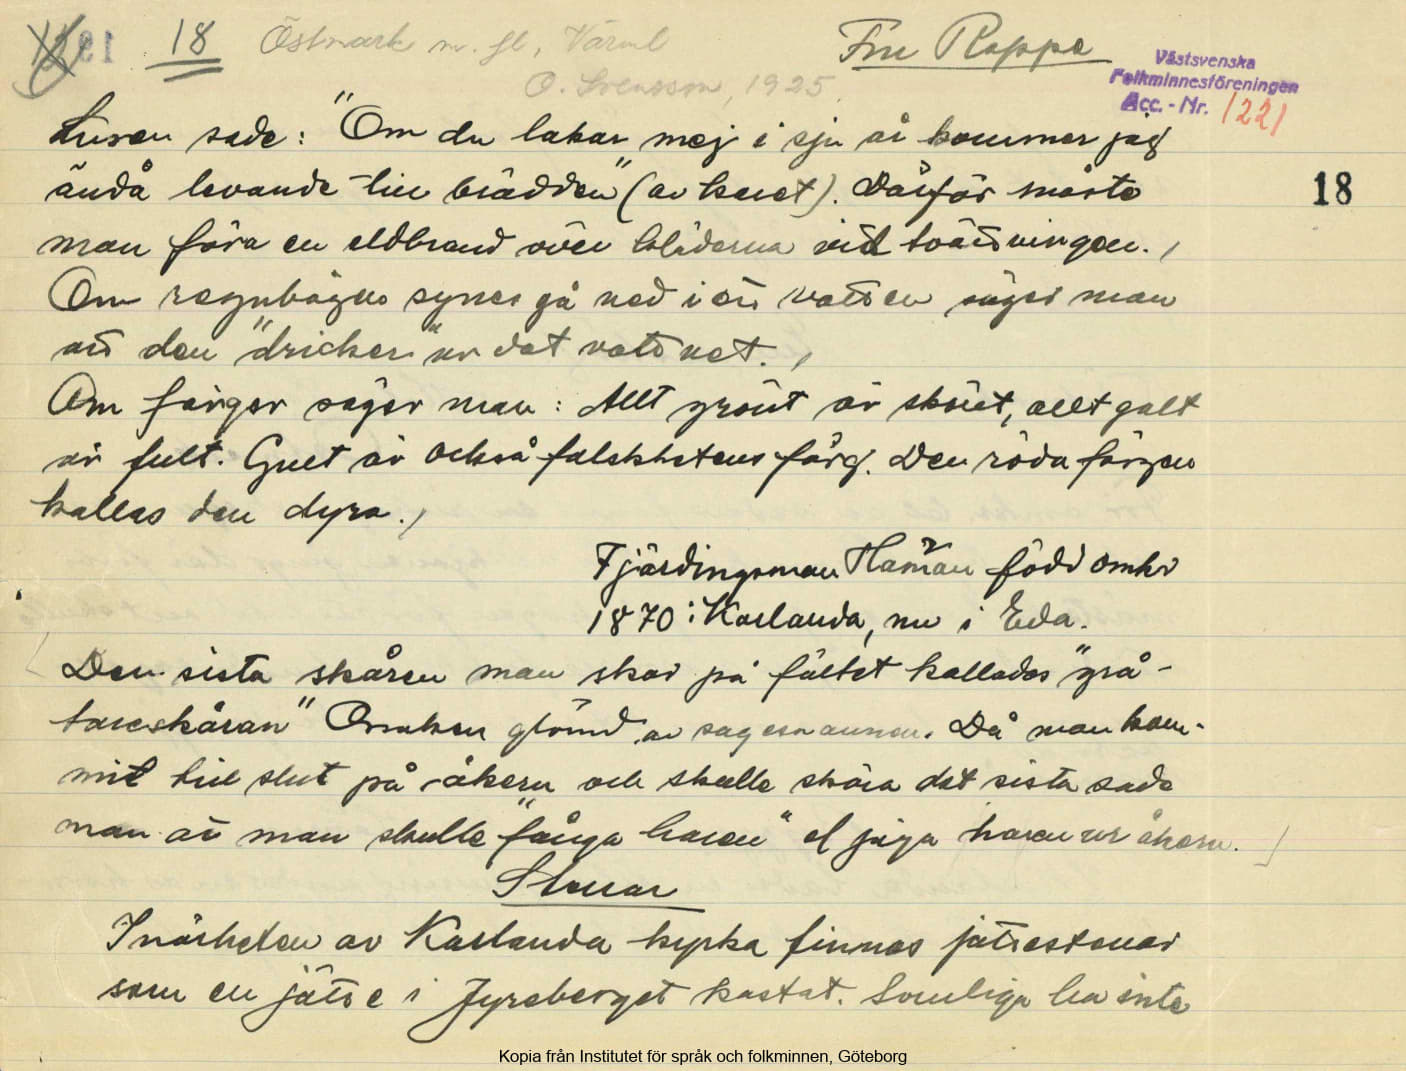 18 Östmark m. fl, Värml Fru Roppe
O. Svensson, 1925
Västsvenska
Folkminnesföreningen
Acc. - Nr. 1221
18
Lusen sade: "Om du lakar mej i sju år kommer jag
ändå levande till brädden" (av karet). Därför måste
man föra en eldbrand över kläderna vid tvättningen.
Om regnbågen synes gå ned i ett vatten säger man
att den "dricker" ur det vattnet.
Om färger säger man: Allt grönt är skönt, allt gult
är fult. Gult är också falskhetens färg. Den röda färgen
kallas den dyra.
Fjärdingsman född omkr
1870 i Karlanda, nu i Eda.
Den sista skåren man skar på fältet kallades "grå-
tareskåran" Orsaken glömd av sagesmannen. Då man kom-
mit till slut på åkern och skulle skära det sista sade
man att man skulle "fånga haren" el jaga haren ur åkern.
Stenar
I närheten av Karlanda kyrka finnes jättestenar
som en jätte i Jyreberget kastat. Somliga ha inte
Kopia från Institutet för språk och folkminnen, Göteborg